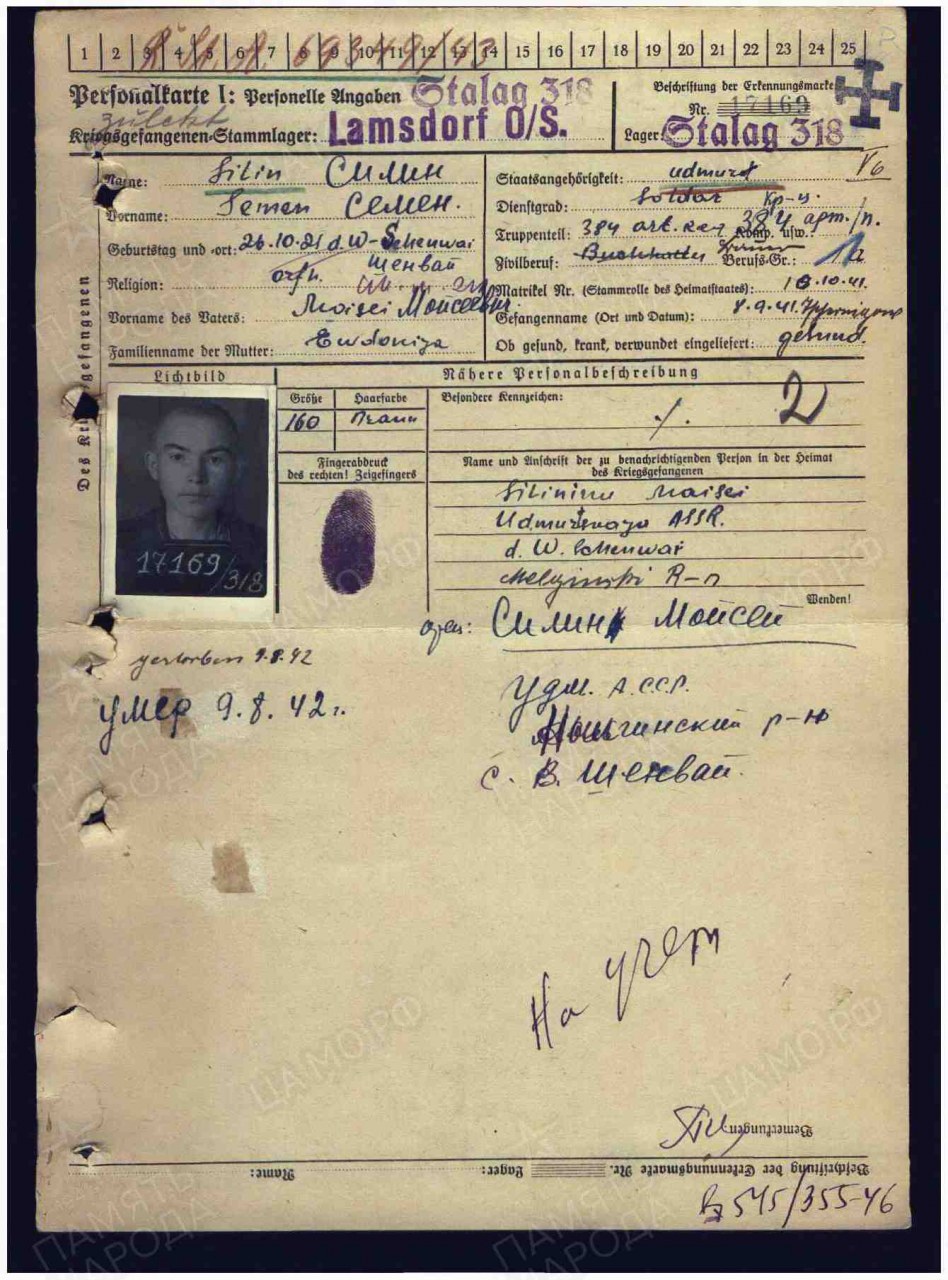 1 2 3 4 5 6 7 8 9 10 11 12 13 14 15 16 17 18 19 20 21 22 23 24 25
Personalkarte I: Personelle Angaben
Stalag 318
zuletzt
Kriegsgefangenen-Stammlager:
Lamsdorf O/S.
Beschriftung der Erkennungsmarke
Nr. 17169
Lager: Stalag 318
Des Kriegsgefangenen
Name: Silin Силин
Vorname: Semen Семен.
Geburtstag und -ort: 26.10.21 d. W-Schenwai
Шенвай
Religion: orth.
Vorname des Vaters: Moisei Моисеевич
Familienname der Mutter: Ewdonija
Staatsangehörigkeit: udmurt
V6
Dienstgrad: Soldat кр-ц.
Truppenteil: 384 art. reg 384 арт./п.
Komp. usw.:
Zivilberuf: Buchhalter
Berufs-Gr.: 1a
Matrikel Nr. (Stammrolle des Heimatstaates): 18.10.41.
Gefangenname (Ort und Datum): 8.9.41.
Ob gesund, krank, verwundet eingeliefert: gesund.
Lichtbild
17169/318
Nähere Personalbeschreibung
Größe Haarfarbe
160 Braun
Besondere Kennzeichen:
./. 2
Fingerabdruck
des rechten! Zeigefingers
Name und Anschrift der zu benachrichtigenden Person in der Heimat
des Kriegsgefangenen
Silinim Maisei
Udmurtskaya ASSR.
d. W. Schenwai
R-n
Wenden!
Силин Мойсей
gestorben 9.8.42
умер 9.8.42г.
Удм. А.ССР.
р-н
с. В. Шенвай.
На учет
Bemerkungen:
Beschriftung der Erkennungsmarke Nr. Lager: Name:
545/355-46
ПАМЯТЬ НАРОДА
ЦАМО.РФ